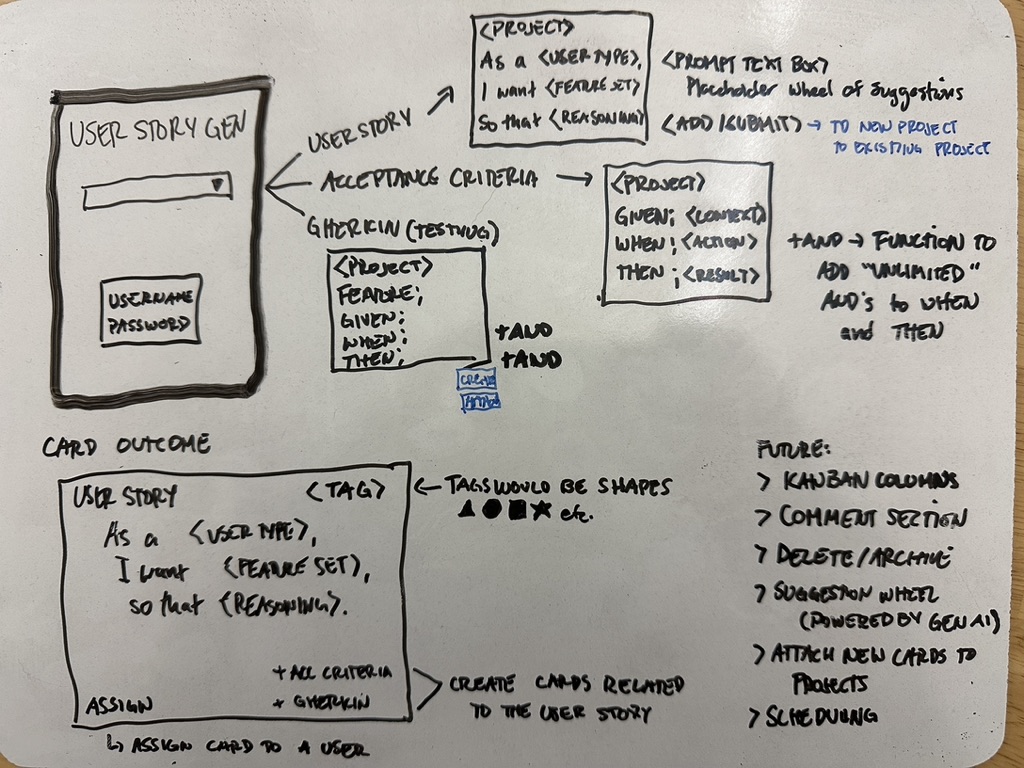 USER STORY GEN
USERNAME
PASSWORD
USER STORY
<PROJECT>
As a <USER TYPE>,
I want <FEATURE SET>
So that <REASONING>
<PROMPT TEXT BOX>
Placeholder wheel of suggestions
<ADD/SUBMIT> → TO NEW PROJECT
TO EXISTING PROJECT
ACCEPTANCE CRITERIA
<PROJECT>
GIVEN; <CONTEXT>
WHEN; <ACTION>
THEN; <RESULT>
+AND → FUNCTION TO
ADD "UNLIMITED"
AND's to WHEN
and THEN
GHERKIN (TESTNUG)
<PROJECT>
FEATURE;
GIVEN;
WHEN;
THEN;
+AND
+AND
CREATE
ATTACH
CARD OUTCOME
USER STORY <TAG>
As a <USER TYPE>,
I want <FEATURE SET>,
so that <REASONING>.
+ ACC CRITERIA
ASSIGN + GHERKIN
↳ ASSIGN CARD TO A USER
← TAGS WOULD BE SHAPES
▲ ● ■ ★ etc.
CREATE CARDS RELATED
TO THE USER STORY
FUTURE:
> KANBAN COLUMNS
> COMMENT SECTION
> DELETE/ARCHIVE
> SUGGESTION WHEEL
(POWERED BY GEN AI)
> ATTACH NEW CARDS TO
PROJECTS
> SCHEDULING